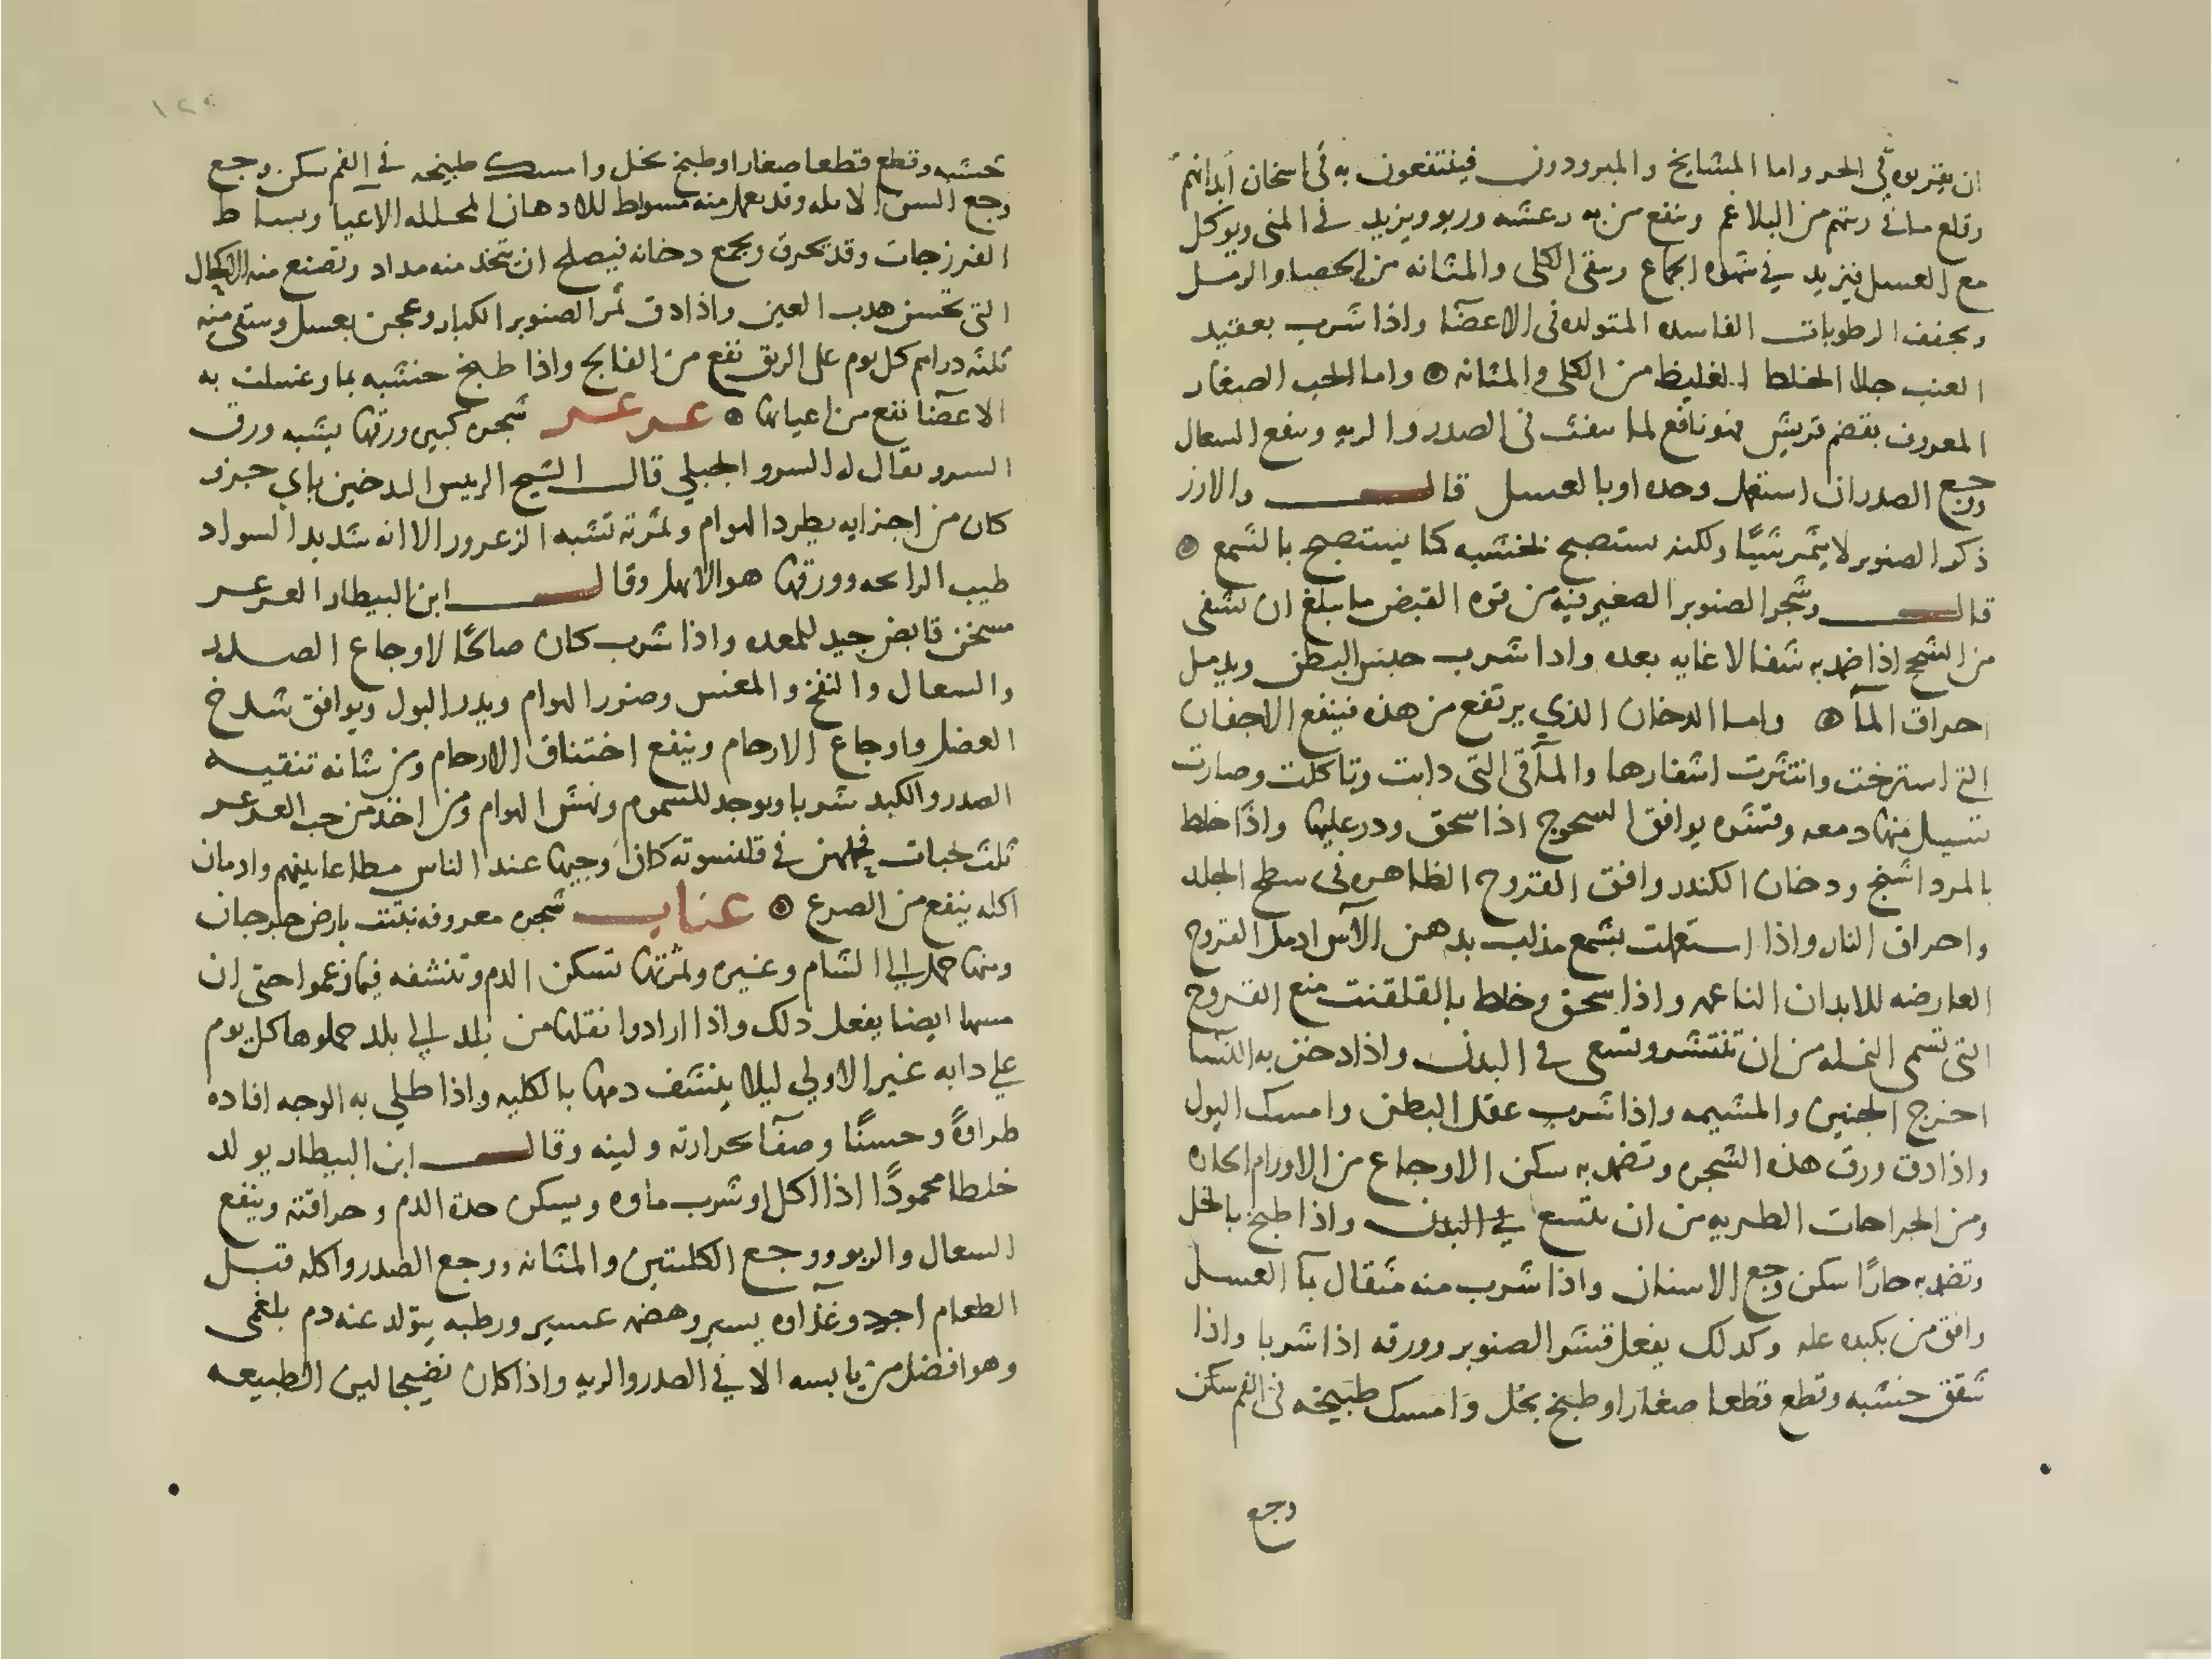 ان يقربوه في الحر واما المشايخ والمبرودون فينتفعون به في اسخان ابدانهم
وقلع ما في ريتهم من البلاغم وينفع من به رعشه وربو ويزيد في المنى ويوكل
مع العسل فيزيد في شهوه الجماع وينقى الكلى والمثانه من الحصا والرمل
ويجفف الرطوبات الفاسده المتولده في الاعضا واذا شرب بعقيد
العنب جلا الخلط الغليظ من الكلى والمثانه ۞ واما الحب الصغار
المعروف بقضم قريش فهو نافع لما ينفث في الصدر والريه وينفع السعال
ووجع الصدر ان استعمل وحده او بالعسل قال والارز
ذكر الصنوبر لا يثمر شيًا ولكنه يستصبح بخشبه كما يستصبح بالشمع ۞
قال وشجر الصنوبر الصغير فيه من قوه القبض ما يبلغ ان يشفى
من السحج اذا ضمد به شفا لا غايه بعده واذا شرب حبس البطن ويدمل
احراق المآ ۞ واما الدخان الذي يرتفع من هذه فينفع الاجفان
التي استرخت وانتثرت اشفارها والمآقى التى دابت وتاكلت وصارت
تسيل منها دمعه وقشره يوافق السحوج اذا سحق ودر عليها واذا خلط
بالمرداسنج ودخان الكندر وافق القروح الظاهره في سطح الجلد
واحراق النار واذا استعملت بشمع مذاب بدهن الآس ادمل القروح
العارضه للابدان الناعمه واذا سحق وخلط بالقلقنت منع القروح
التى تسمى النمله من ان تنتشر وتسعى في البدن واذا دخن به النسا
اخرج الجنين والمشيمه واذا شرب عقل البطن وامسك البول
واذا دق ورق هذه الشجره وتضمد به سكن الاوجاع من الاورام الحاره
ومن الجراحات الطريه من ان تتسع في البدن واذا طبخ بالخل
وتضمد به حارًا سكن وجع الاسنان واذا شرب منه مثقال بمآ العسل
وافق من بكبده عله وكدلك يفعل قشر الصنوبر وورقه اذا شربا واذا
شقق خشبه وقطع قطعا صغارا وطبخ بخل وامسك طبيخه في الفم سكن
وجع
١٢٥
خشبه وقطع قطعا صغارا وطبخ بخل وامسك طبيخه في الفم سكن وجع
وجع السن الالمه وقد يعمل منه مسواط للادهان المحلله الاعيا وبساط
الفرزجات وقد يحرق ويجمع دخانه فيصلح ان يتخذ منه مداد وتصنع منه الاكحال
التى تحسن هدب العين واذا دق ثمر الصنوبر الكبار وعجن بعسل وسقى منه
ثلثه دراهم كل يوم على الريق نفع من الفالج واذا طبخ خشبه بما وغسلت به
الاعضآ نفع من اعيائها ۞ عرعر شجره كبيره ورقها يشبه ورق
السرو يقال له السرو الجبلي قال الشيخ الرييس الدخين باي جزو
كان من اجزايه يطرد الهوام وثمرته تشبه الزعرور الا انه شديد السواد
طيب الرائحه وورقها هو الابهل وقال ابن البيطار العرعر
مسخن قابض جيد للمعده واذا شرب كان صالحًا لاوجاع الصدر
والسعال والنفخ والمغس وضرر الهوام ويدر البول ويوافق شدخ
العضل واوجاع الارحام وينفع اختناق الارحام ومن شانه تنقيه
الصدر والكبد شربا ويوجد للسموم ونهش الهوام ومن اخذ من حب العرعر
ثلث حبات فجعلهن في قلنسوته كان وجيها عند الناس مطاعا بينهم وادمان
اكله ينفع من الصرع ۞ عناب شجره معروفه تنبت بارض جرجان
ومنها حمل الى الشام وغيره وثمرتها تسكن الدم وتنشفه فيما زعموا حتى ان
مسها ايضا يفعل دلك واذا ارادوا نقلها من بلد الي بلد حملوها كل يوم
علي دابه غير الاولي ليلا ينشف دمها بالكليه واذا طلي به الوجه افاده
طراوةً وحسنًا وصفآ بحرارته ولينه وقال ابن البيطار يولد
خلطا محمودًا اذا اكل او شرب ماوه ويسكن حدة الدم وحرافته وينفع
السعال والربو ووجع الكليتين والمثانه ووجع الصدر واكله قبل
الطعام اجود وغذآوه يسير وهضمه عسير ورطبه يتولد عنه دم بلغمى
وهو افضل من يابسه الا في الصدر والريه واذا كان نضيجا لين الطبيعه